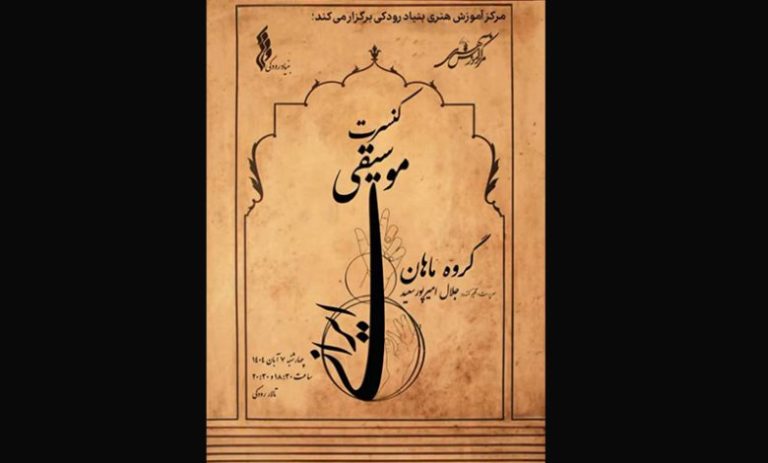 مرکز آموزش هنری بنیاد رودکی برگزار می کند؛
بنیاد رودکی
کنسرت
موسیقی
ایرانی
گروه ماهان
جلال امیرپورسعید
چهارشنبه ۷ آبان ۱۴۰۴
ساعت ۱۸:۳۰ و ۲۰:۳۰
تالار رودکی